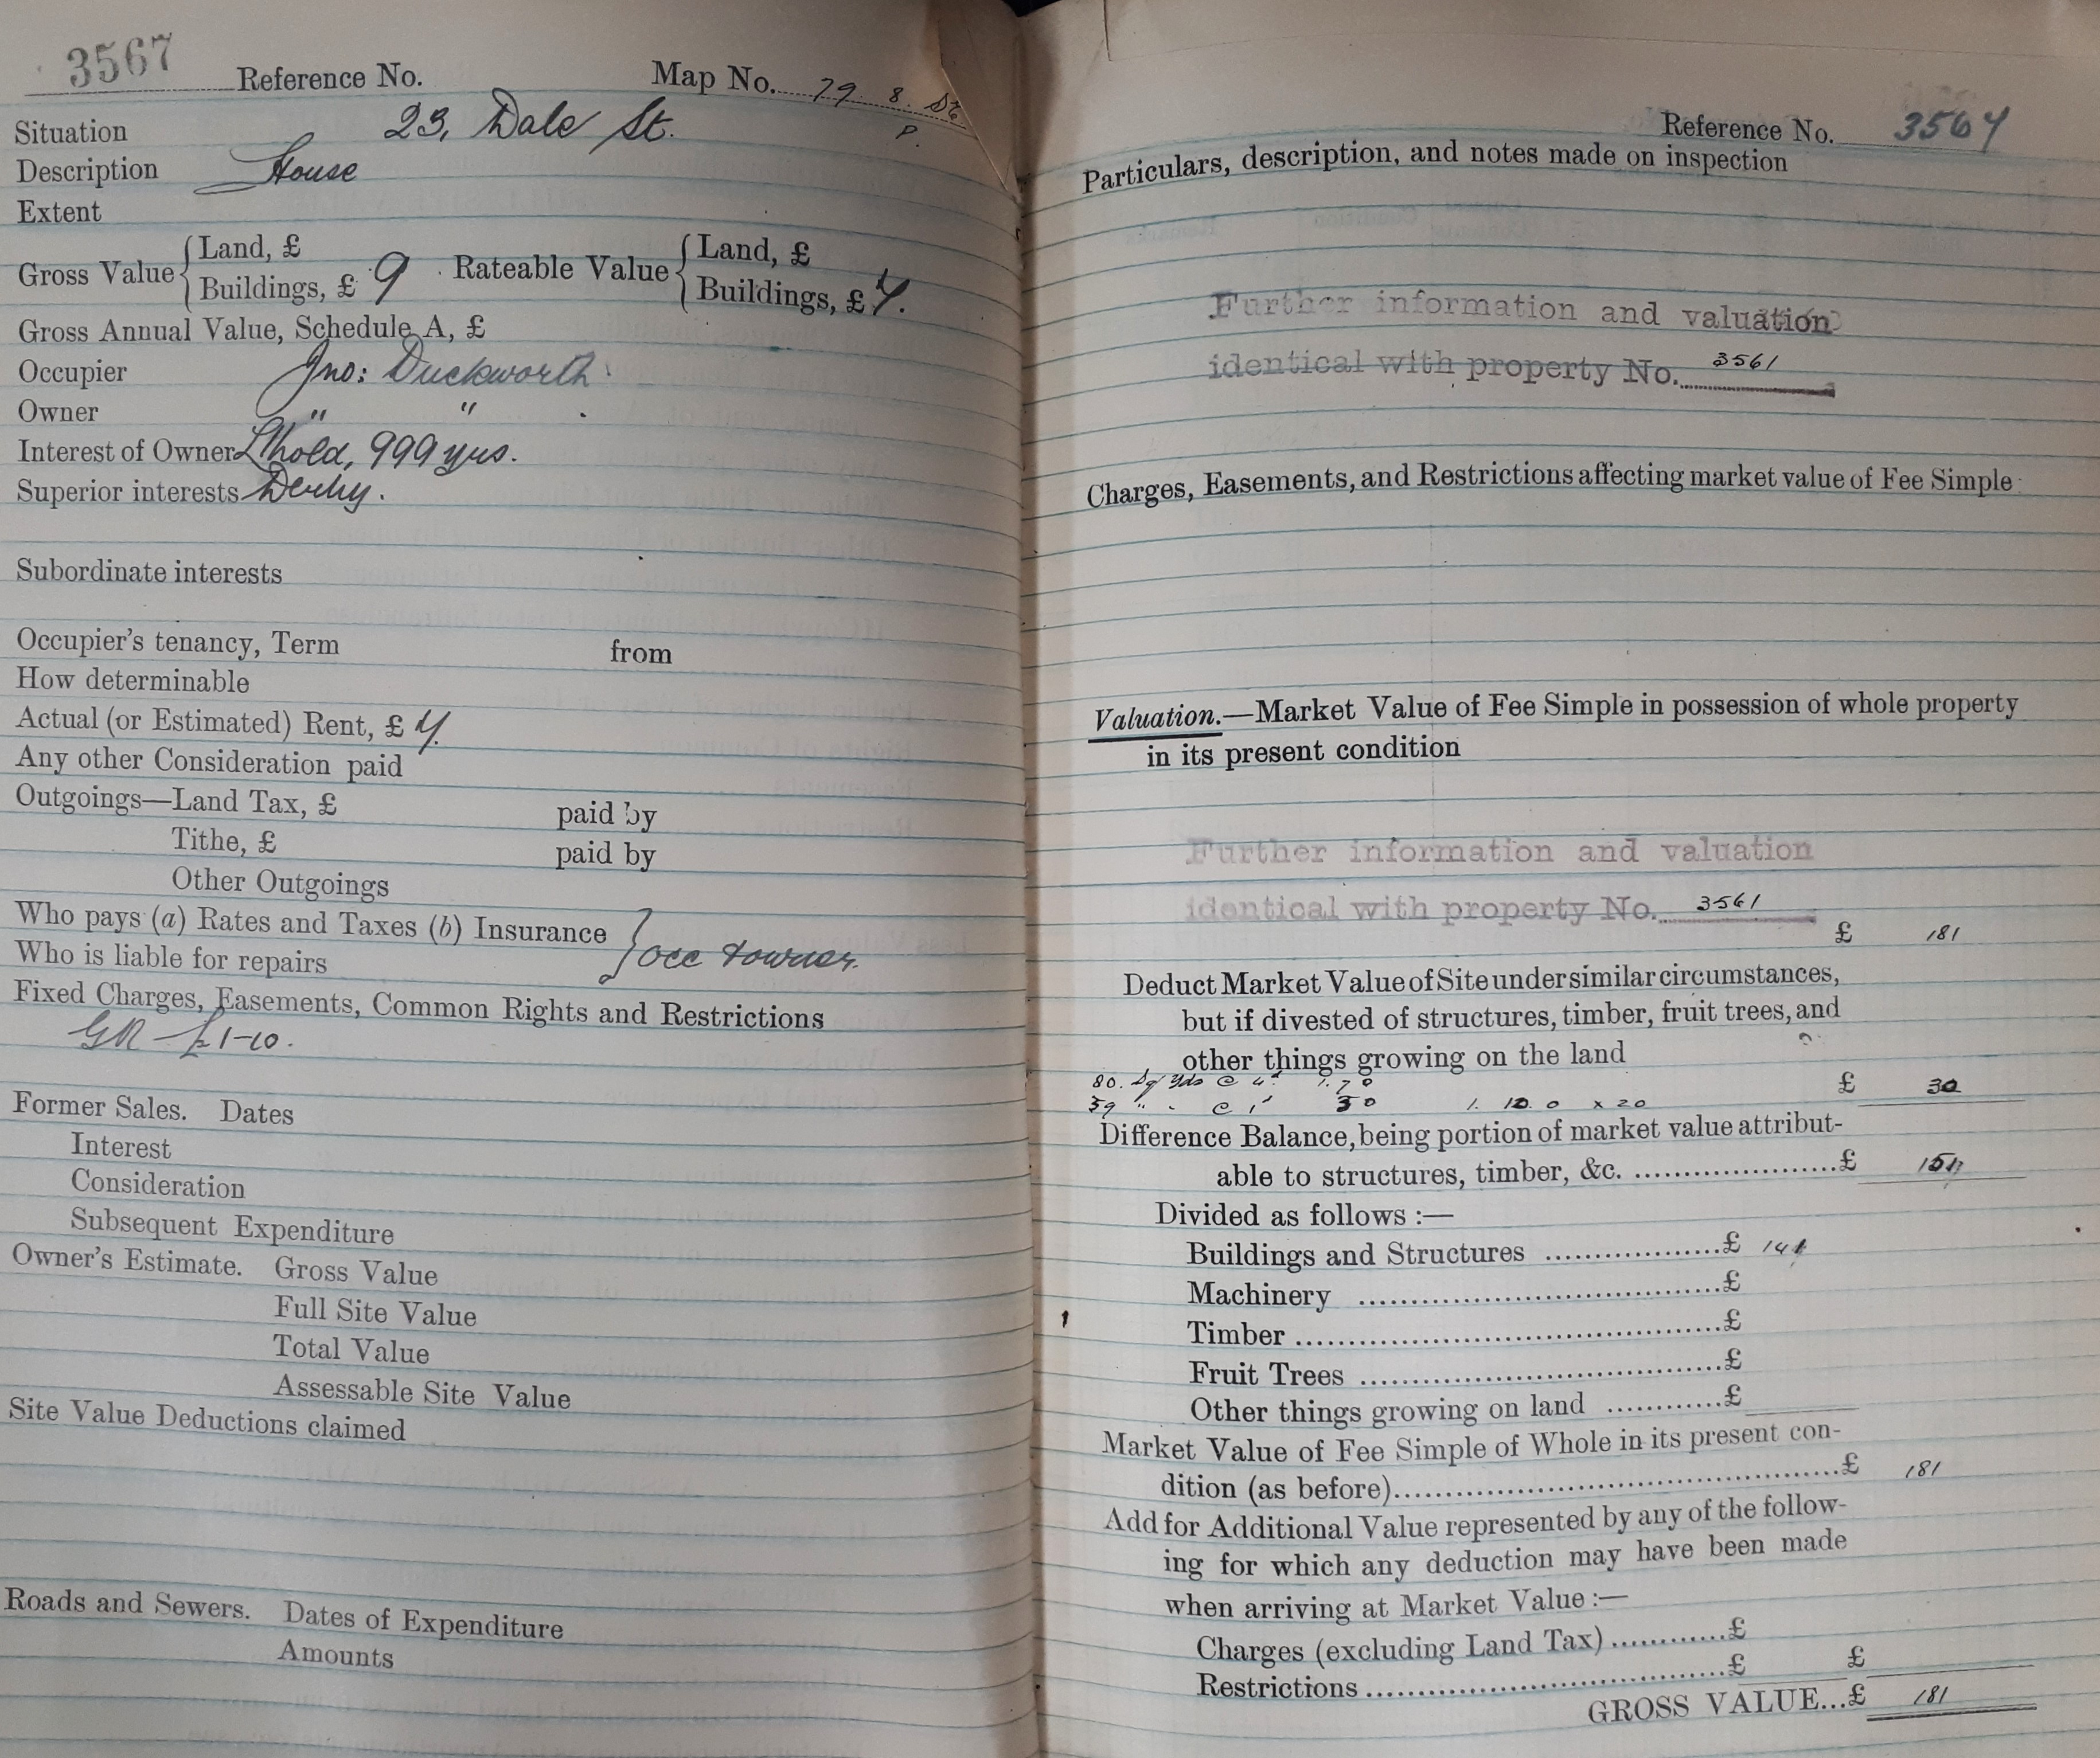 3567 Reference No. Map No. 79. 8.
P.
Situation 23, Dale St.
Description House
Extent
Gross Value { Land, £ Rateable Value { Land, £
Buildings, £ 9 Buildings, £ 7.
Gross Annual Value, Schedule A, £
Occupier Jno: Duckworth
Owner " "
Interest of Owner L'hold, 999 yrs.
Superior interests Derby.
Subordinate interests
Occupier's tenancy, Term from
How determinable
Actual (or Estimated) Rent, £ 9.
Any other Consideration paid
Outgoings—Land Tax, £ paid by
Tithe, £ paid by
Other Outgoings
Who pays (a) Rates and Taxes (b) Insurance
Who is liable for repairs } occ & owner.
Fixed Charges, Easements, Common Rights and Restrictions
GR £1-10.
Former Sales. Dates
Interest
Consideration
Subsequent Expenditure
Owner's Estimate. Gross Value
Full Site Value
Total Value
Assessable Site Value
Site Value Deductions claimed
Roads and Sewers. Dates of Expenditure
Amounts
Reference No. 3567
Particulars, description, and notes made on inspection
Further information and valuation
identical with property No. 3561
Charges, Easements, and Restrictions affecting market value of Fee Simple
Valuation.—Market Value of Fee Simple in possession of whole property
in its present condition
Further information and valuation
identical with property No. 3561
£ 181
Deduct Market Value of Site under similar circumstances,
but if divested of structures, timber, fruit trees, and
other things growing on the land
80. Sq Yds @ 4d 1. 7 0 £ 30
39 " " @ 1d 3 0 1. 10. 0 x 20
Difference Balance, being portion of market value attribut-
able to structures, timber, &c. £ 151
Divided as follows :—
Buildings and Structures £
Machinery £
Timber £
Fruit Trees £
Other things growing on land £
Market Value of Fee Simple of Whole in its present con-
dition (as before) £ 181
Add for Additional Value represented by any of the follow-
ing for which any deduction may have been made
when arriving at Market Value :—
Charges (excluding Land Tax) £
Restrictions £ £
GROSS VALUE...£ 181